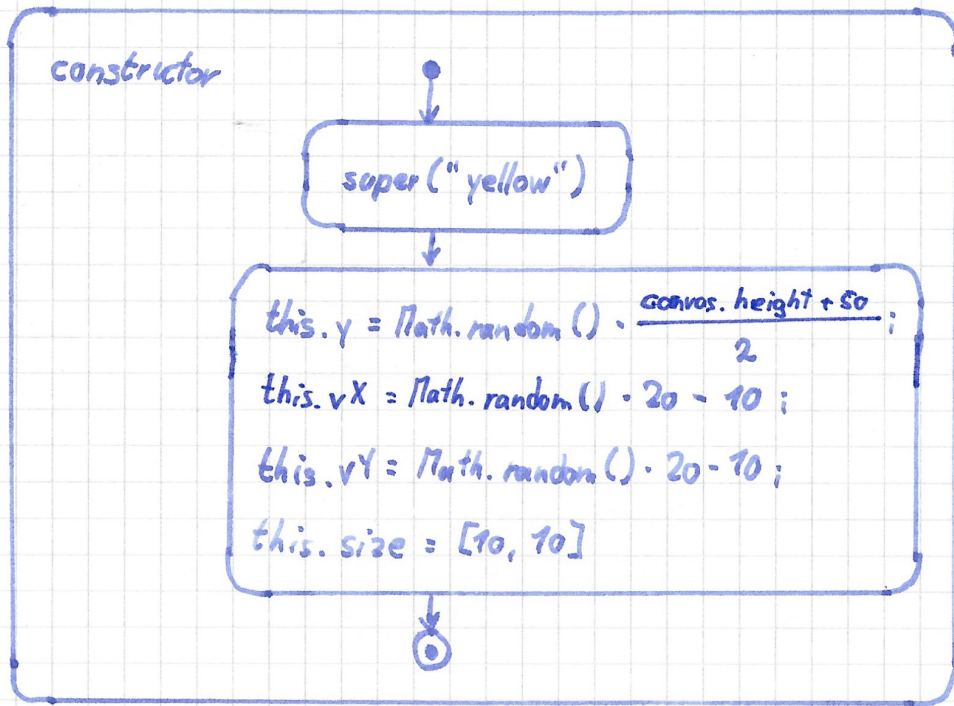 constructor
super("yellow")
this.y = Math.random() · canvas.height + 50 / 2 ;
this.vX = Math.random() · 20 - 10 ;
this.vY = Math.random() · 20 - 10 ;
this.size = [10, 10]